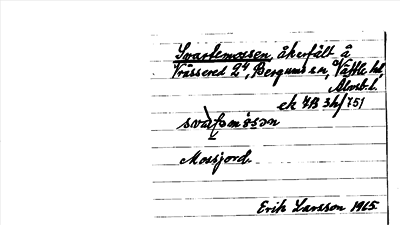 Svartemossen, åkerfält å
Vråssered 2⁴, Bergums sn, Vättle hd,
Älvsb. l.
ek 7B 3h/751
Mossjord.
Erik Larsson 1965